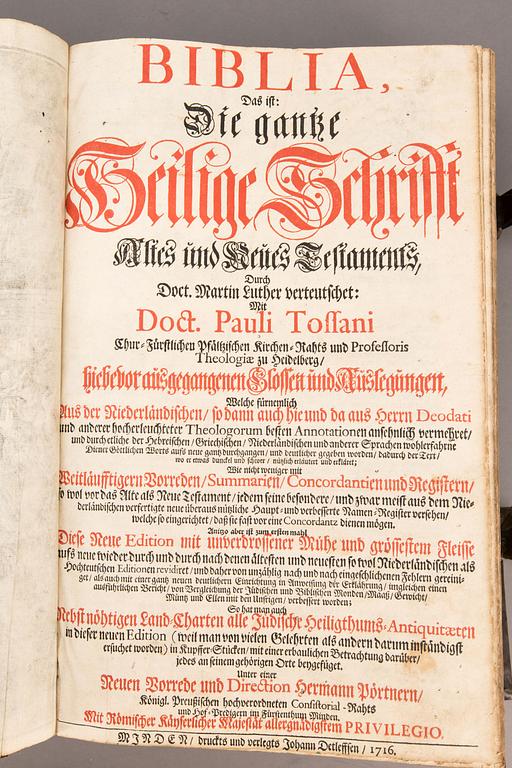 BIBLIA,
Das ist:
Die gantze
Heilige Schrifft
Altes und Neues Testaments,
Durch
Doct. Martin Luther verteutschet:
Mit
Doct. Pauli Tossani
Chur-Fürstlichen Pfältzischen Kirchen-Rahts und Professoris
Theologiæ zu Heidelberg/
hiebevor ausgegangenen Glossen und Auslegungen,
Welche fürnemlich
Aus der Niederländischen/ so dann auch hie und da aus Herrn Deodati
und anderer hocherleuchteter Theologorum besten Annotationen ansehnlich vermehret/
und durch etliche der Hebreischen/ Griechischen/ Niederländischen und anderer Sprachen wohlerfahrne
Diener Göttlichen Worts aufs neue gantz durchgangen/ und deutlicher gegeben worden/ dadurch der Text/
wo er etwas dunckel und schwer/ nützlich erläutert und erkläret;
Wie nicht weniger mit
Weitläufftigern Vorreden/ Summarien/ Concordantien und Registern/
so wol vor das Alte als Neue Testament/ jedem seine besondere/ und zwar meist aus dem Nie-
derländischen verfertigte neue überaus nützliche Haupt- und verbesserte Namen-Register versehen/
welche so eingerichtet/ daß sie fast vor eine Concordantz dienen mögen.
Anitzo aber ist zum ersten mahl
Diese Neue Edition mit unverdrossener Mühe und grössestem Fleisse
aufs neue wieder durch und durch nach denen ältesten und neuesten so wol Niederländischen als
Hochteutschen Editionen revidiret/ und daher von unzählig nach und nach eingeschlichenen Fehlern gereini-
get/ als auch mit einer gantz neuen deutlichern Einrichtung in Anweisung der Erklärung/ imgleichen einen
ausführlichen Bericht/ von Vergleichung der Jüdischen und Biblischen Monden/ Maatz/ Gewicht/
Müntz und Ellen mit den Unsrigen/ verbessert worden;
So hat man auch
Nebst nöhtigen Land-Charten alle Jüdische Heiligthums-Antiquitæten
in dieser neuen Edition (weil man von vielen Gelehrten als andern darum inständigst
ersuchet worden) in Kupffer-Stücken/ mit einer erbaulichen Betrachtung darüber/
jedes an seinem gehörigen Orte beygefüget.
Unter einer
Neuen Vorrede und Direction Hermann Pörtnern/
Königl. Preußischen hochverordneten Consistorial-Rahts
und Hof-Predigern im Fürstenthum Minden.
Mit Römischer Käyserlicher Majestät allergnädigstem PRIVILEGIO.
MINDEN/ druckts und verlegts Johann Detleffsen/ 1716.